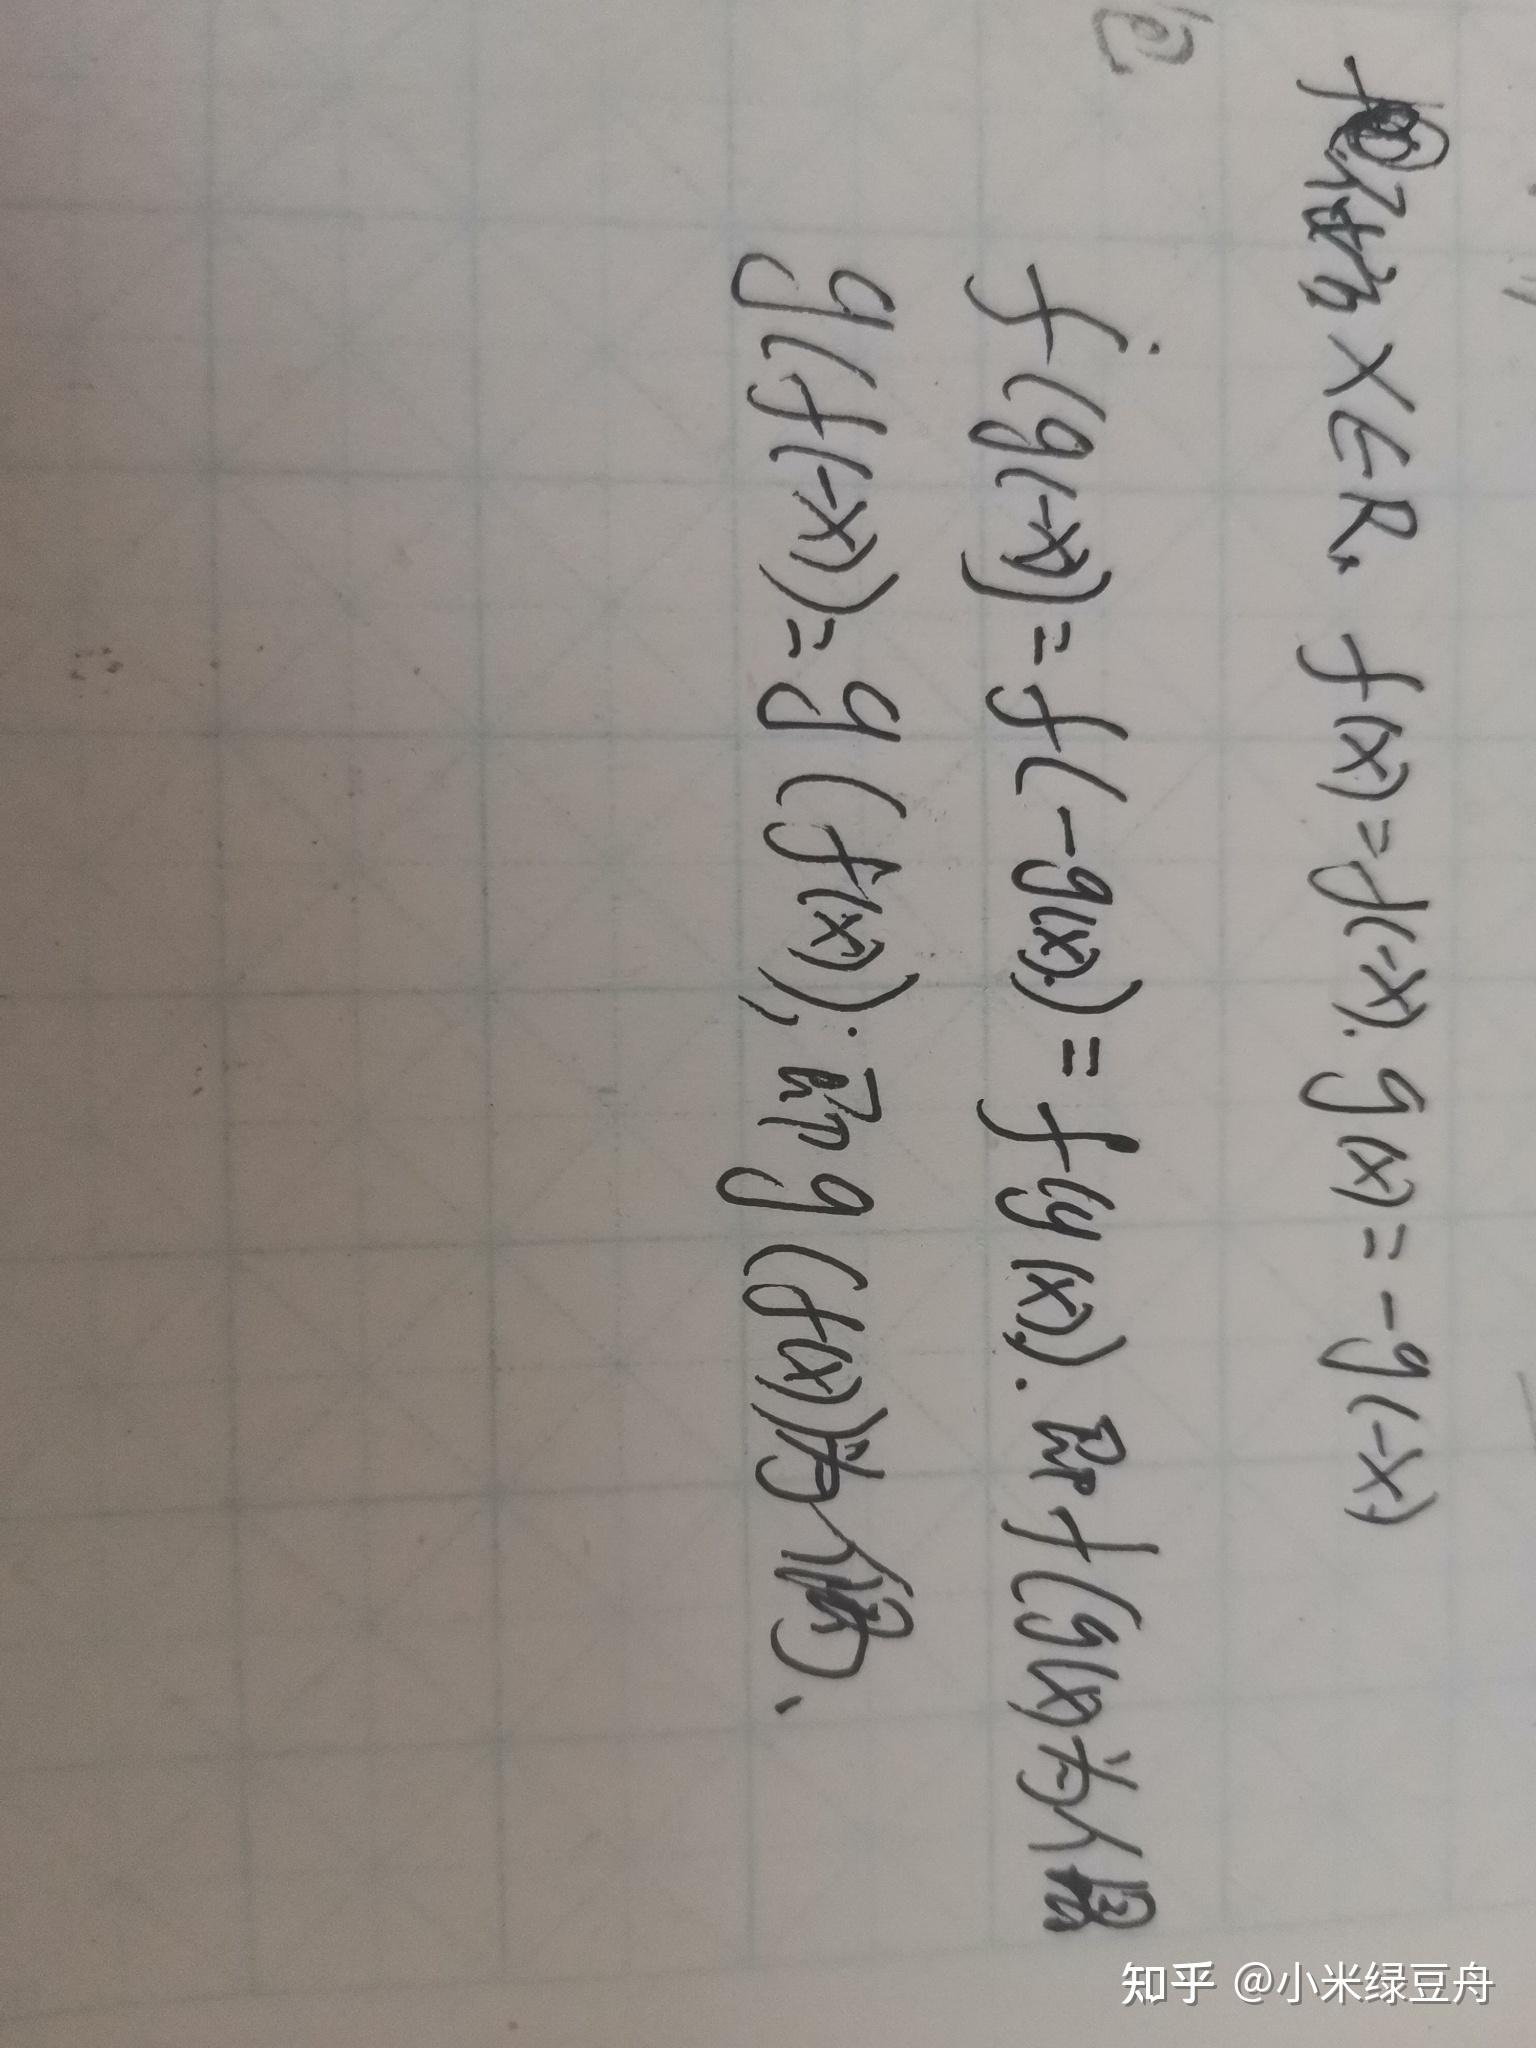 依法为 x∈R, f(x)=f(-x). g(x)=-g(-x)
f(g(-x))=f(-g(x))=f(g(x)). 即f(g(x)为偶
g(f(-x))=g(f(x)); 即g(f(x))为偶、
知乎 @小米绿豆舟